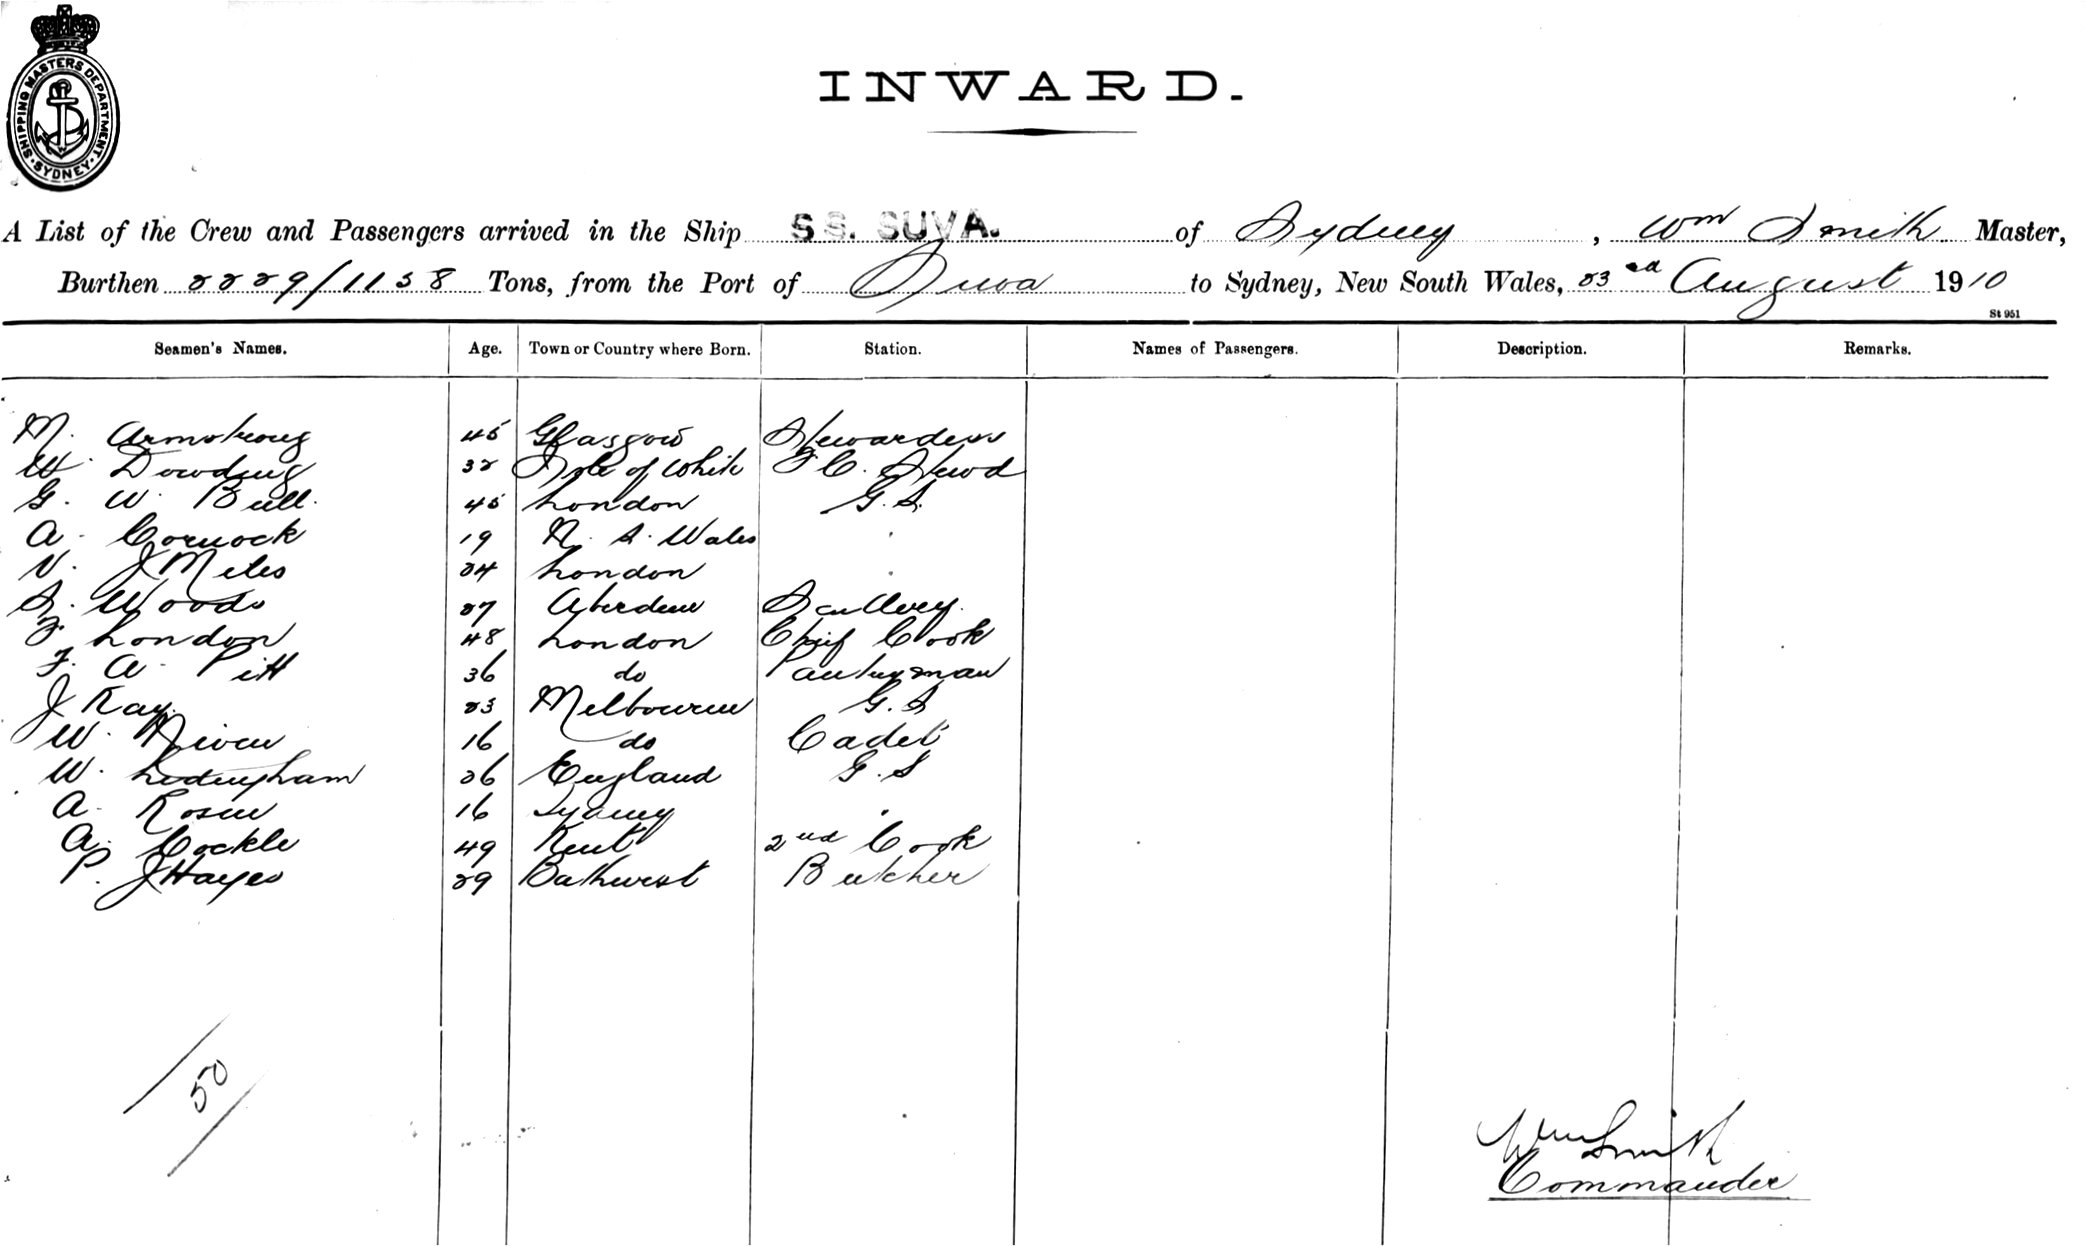 SHIPPING MASTERS DEPARTMENT · SYDNEY ·
INWARD.
A List of the Crew and Passengers arrived in the Ship SS. SUVA. of Sydney, Wm Smith Master,
Burthen 2229/1138 Tons, from the Port of Suva to Sydney, New South Wales, 23rd August 1910
St 951
Seamen's Names. Age. Town or Country where Born. Station. Names of Passengers. Description. Remarks.
M. Armstrong 45 Glasgow Stewardess
W. Dowding 32 Isle of White F.C. Stewd
G. W. Bull. 45 London G.S.
A. Cornock 19 N. S. Wales "
V. J Miles 24 London "
S. Woods 27 Aberdeen Scullery.
F. London 48 London Chief Cook
F. A. Pitt 36 do Pantryman
J Kay. 23 Melbourne G.S
W. Niven 16 do Cadet
W. Ledingham 26 England G.S
A. Rosen 16 Sydney "
A. Cockle 49 Kent 2nd Cook
P. J Hayes 29 Bathurst Butcher
50
Wm Smith
Commander